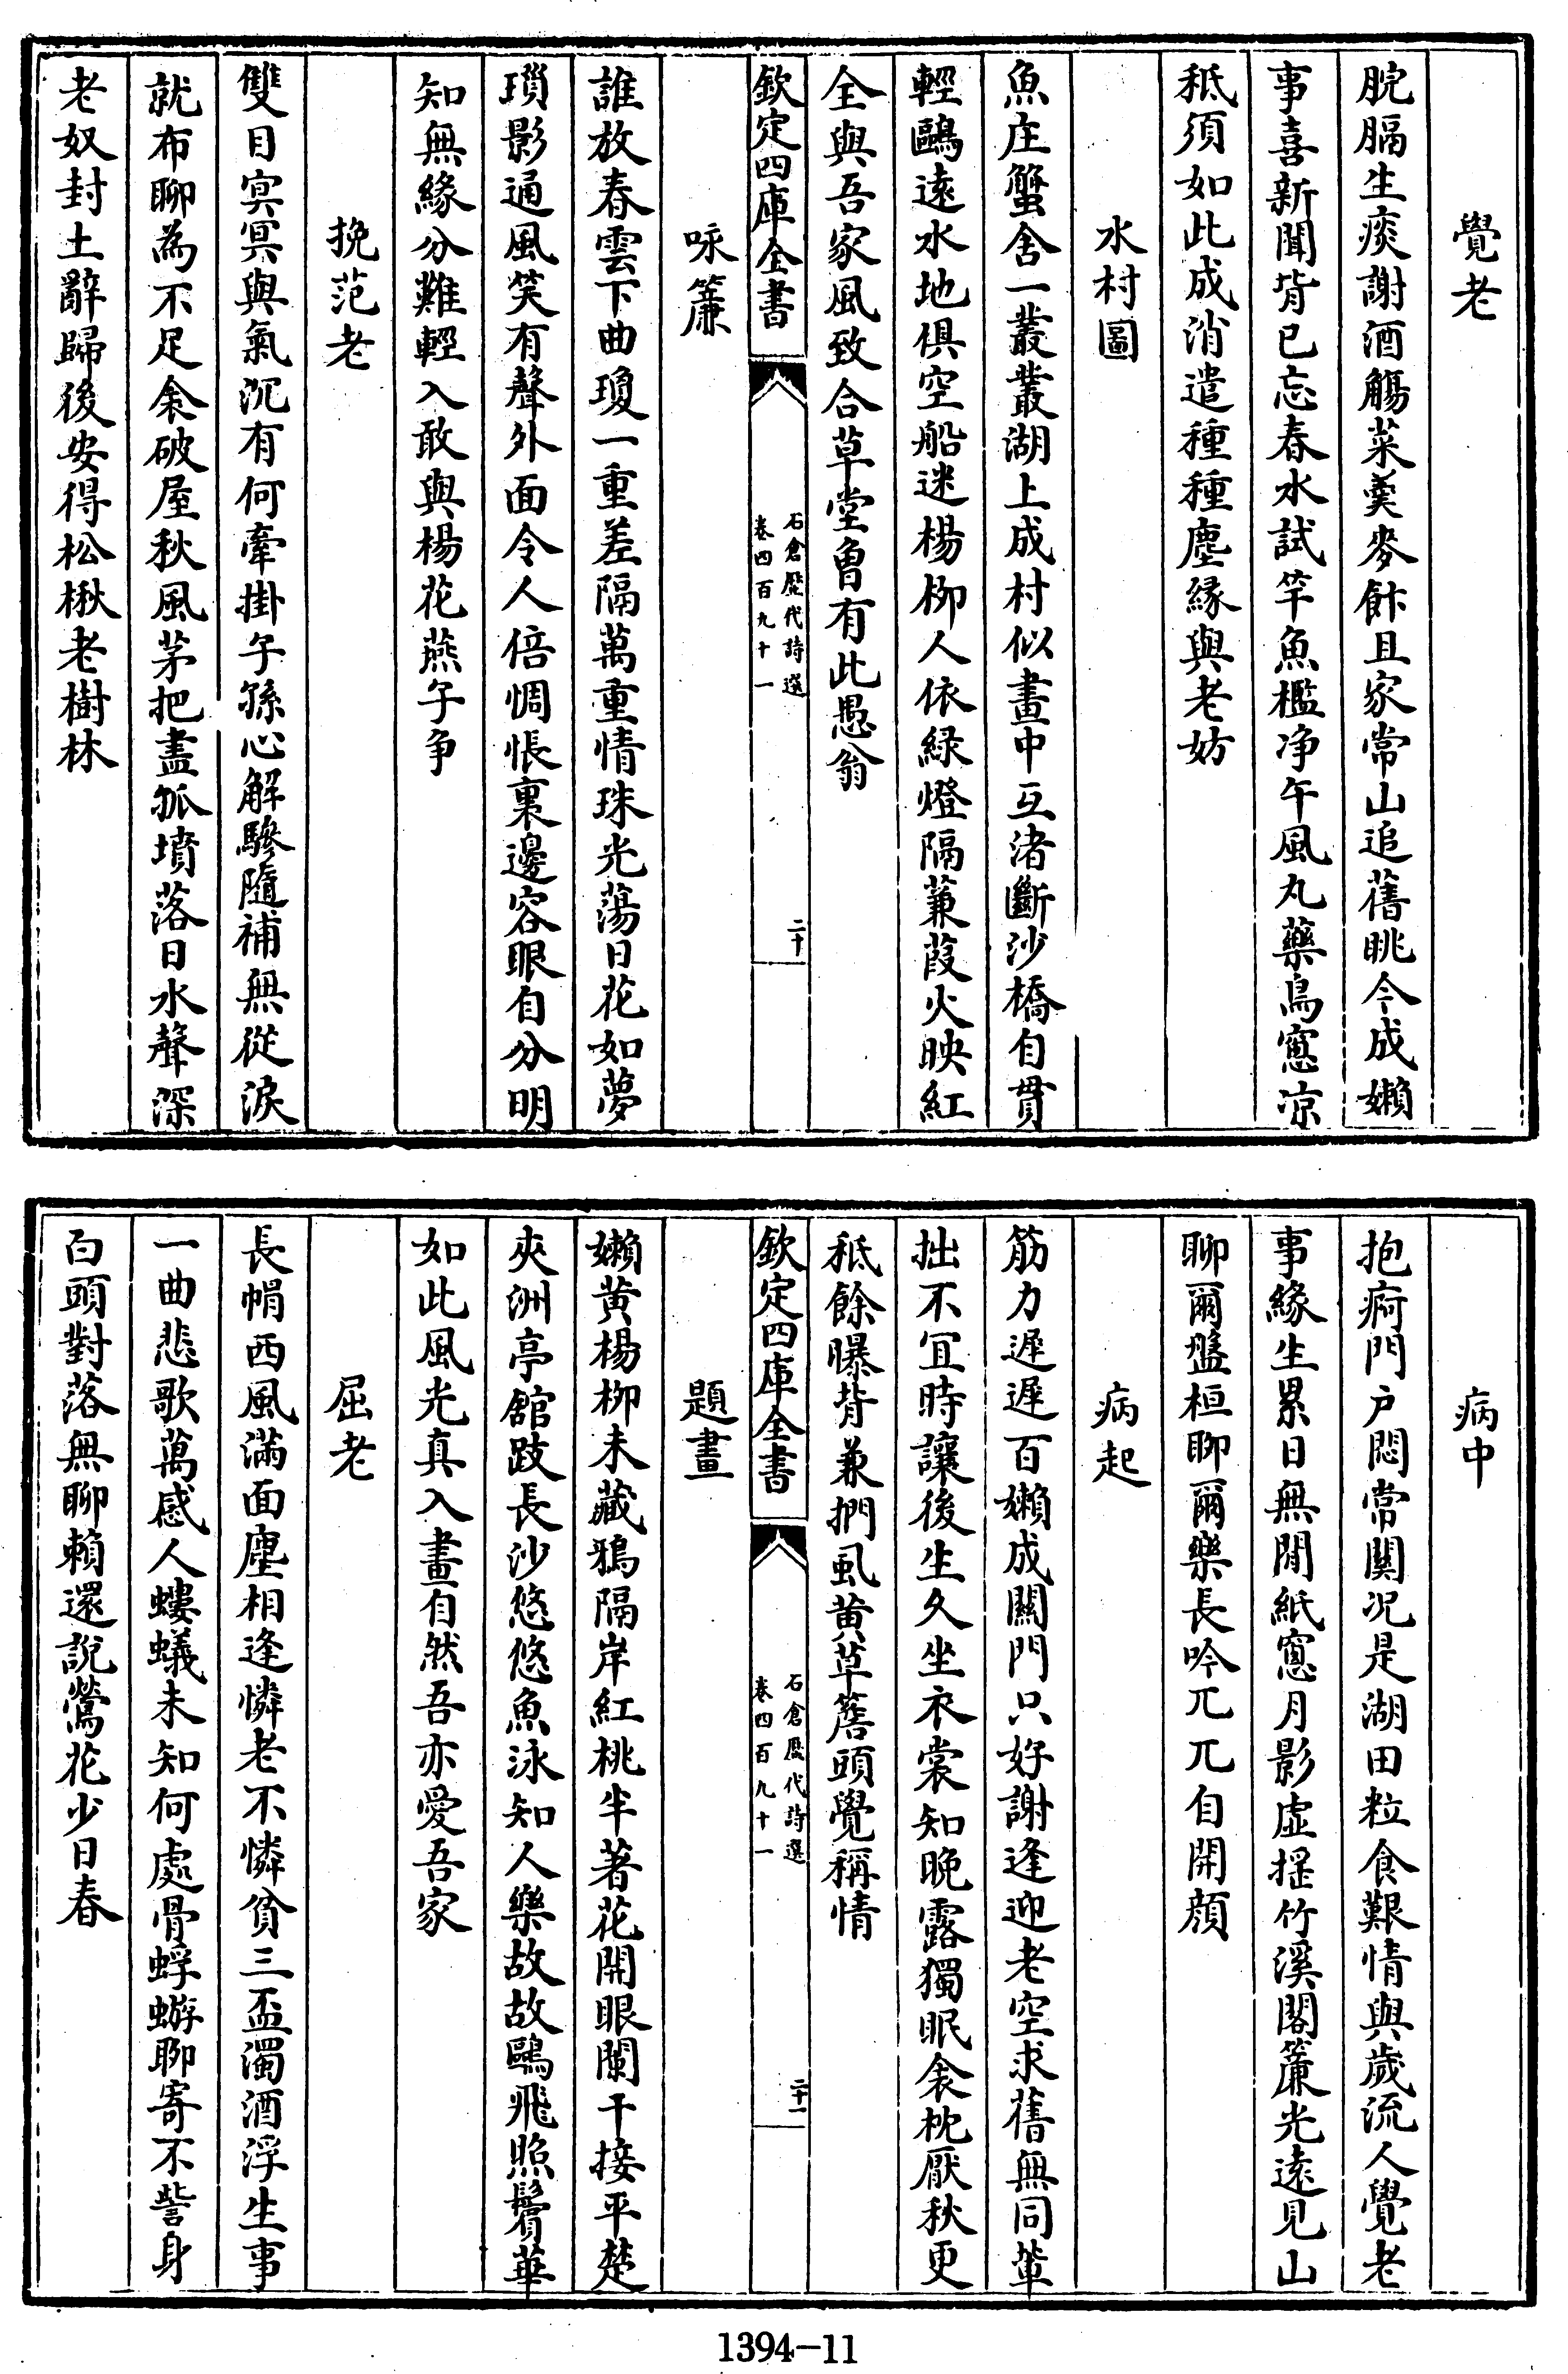 覺老
脘膈生痰謝酒觴菜羮麥飰且家常山追舊眺今成嬾
事喜新聞背已忘春水試竿魚檻净午風丸藥鳥窻凉
秪須如此成消遣種種塵緣與老妨
水村圖
魚庄蟹舍一叢叢湖上成村似畫中互渚斷沙橋自貫
輕鷗逺水地俱空船迷楊柳人依緑燈隔蒹葭火映紅
全與吾家風致合草堂曾有此愚翁
欽定四庫全書
石倉歷代詩選
卷四百九十一
二十
咏簾
誰放春雲下曲瓊一重差隔萬重情珠光蕩日花如夢
瑣影通風笑有聲外面令人倍惆悵裏邊容眼自分明
知無緣分難輕入敢與楊花燕子争
挽范老
雙目寘冥與氣沉有何牽掛子孫心解驂隨補無從淚
就布聊為不足衾破屋秋風茅把盡孤墳落日水聲深
老奴封土辭歸後安得松楸老樹林
病中
抱痾門户悶常關况是湖田粒食艱情與歲流人覺老
事緣生累日無閒紙窻月影虚揺竹溪閣簾光逺見山
聊爾盤桓聊爾樂長吟兀兀自開顔
病起
筋力遲遲百嬾成關門只好謝逢迎老空求舊無同輩
拙不宜時讓後生久坐衣裳知晚露獨眠衾枕厭秋更
秪餘曝背兼捫虱黄草簷頭覺稱情
欽定四庫全書
石倉歷代詩選
卷四百九十一
二十一
題畫
嬾黄楊柳未藏鴉隔岸紅桃半著花開眼闌干接平楚
夾洲亭舘跂長沙悠悠魚泳知人樂故故鷗飛照鬢華
如此風光真入畫自然吾亦愛吾家
屈老
長帽西風滿面塵相逢憐老不憐貧三盃濁酒浮生事
一曲悲歌萬感人螻蟻未知何處骨蜉蝣聊寄不訾身
白頭對落無聊賴還說鶯花少日春
1394-11